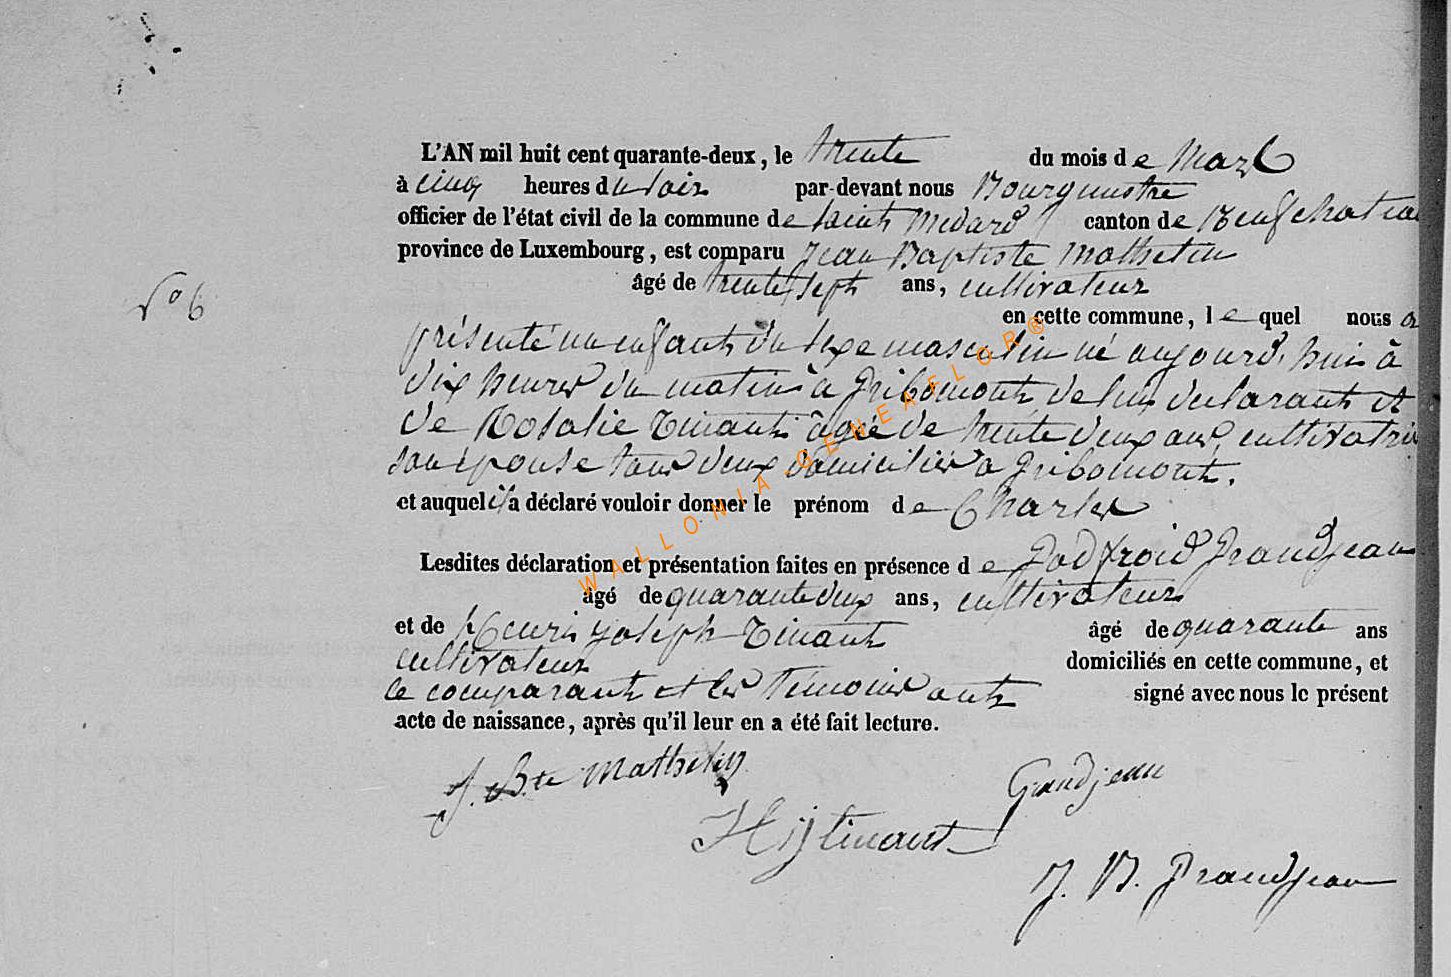 L'AN mil huit cent quarante-deux, le trente du mois de Mars
à cinq heures du soir par-devant nous Bourgmestre
officier de l'état civil de la commune de Saint Médard canton de Neufchatea
province de Luxembourg, est comparu Jean Baptiste Mathelin
âgé de trente sept ans, cultivateur
N° 6
en cette commune, lequel nous a
présenté un enfant du sexe masculin né aujourd'hui à
dix heures du matin à Gribomont de lui déclarant et
de Rosalie Tinant âgée de trente deux ans, cultivatric
son épouse tous deux domiciliés à Gribomont.
et auquel il a déclaré vouloir donner le prénom de Charles
Lesdites déclaration et présentation faites en présence de Godfroid Grandjean
âgé de quarante deux ans, cultivateur
et de Henri Joseph Tinant âgé de quarante ans
cultivateur domiciliés en cette commune, et
le comparant et les témoins ont signé avec nous le présent
acte de naissance, après qu'il leur en a été fait lecture.
J. Bte Mathelin
Grandjean
H j tinant
J. B. Grandjean
WALLONIA-GENEAFLOR®